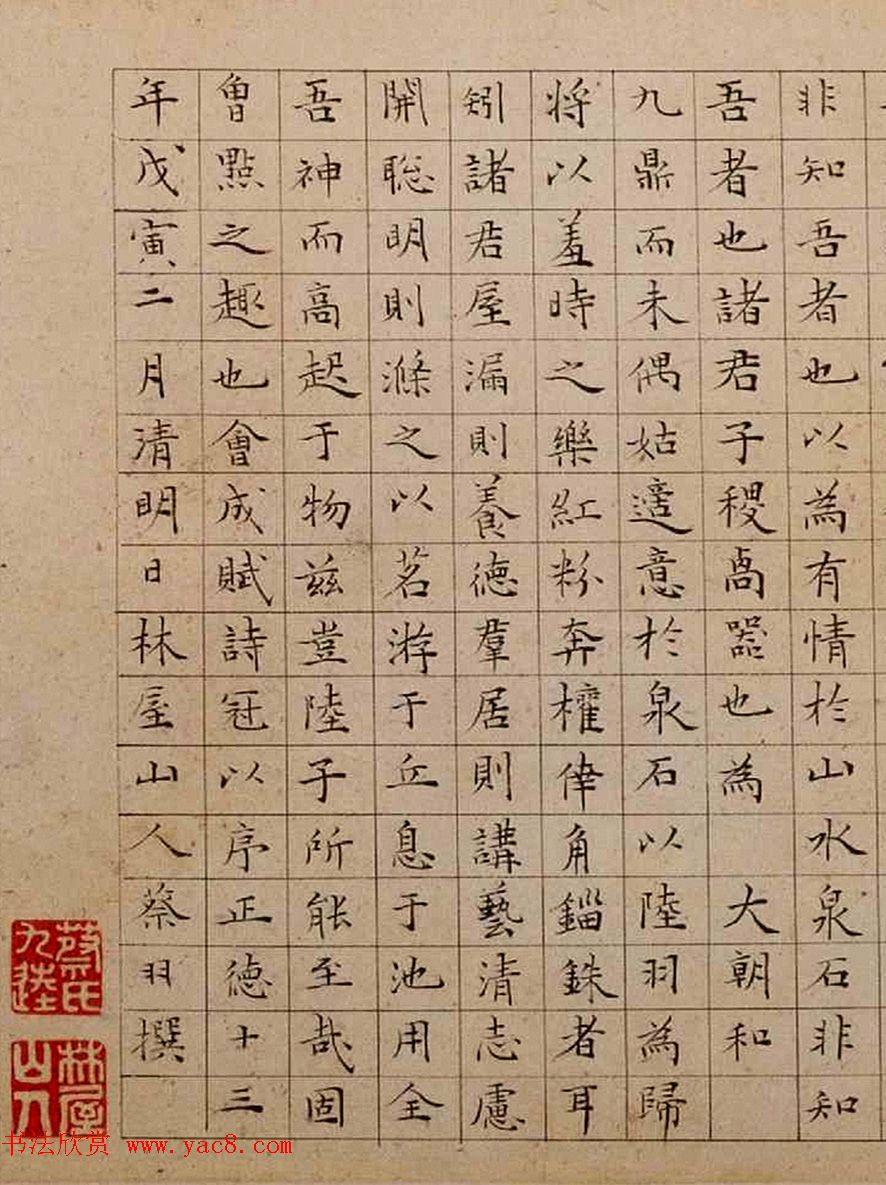 非知吾者也以為有情於山水泉石非知
吾者也諸君子稷卨器也為 大朝和
九鼎而未偶姑適意於泉石以陸羽為歸
将以羞時之樂紅粉奔權倖角錙銖者耳
矧諸君屋漏則養德羣居則講藝清志慮
開聡明則滌之以茗游于丘息于池用全
吾神而高起于物兹豈陸子所能至哉固
曾點之趣也會成賦詩冠以序正德十三
年戊寅二月清明日林屋山人蔡羽撰
蔡氏九逵
林屋山人
书法欣赏 www.yac8.com